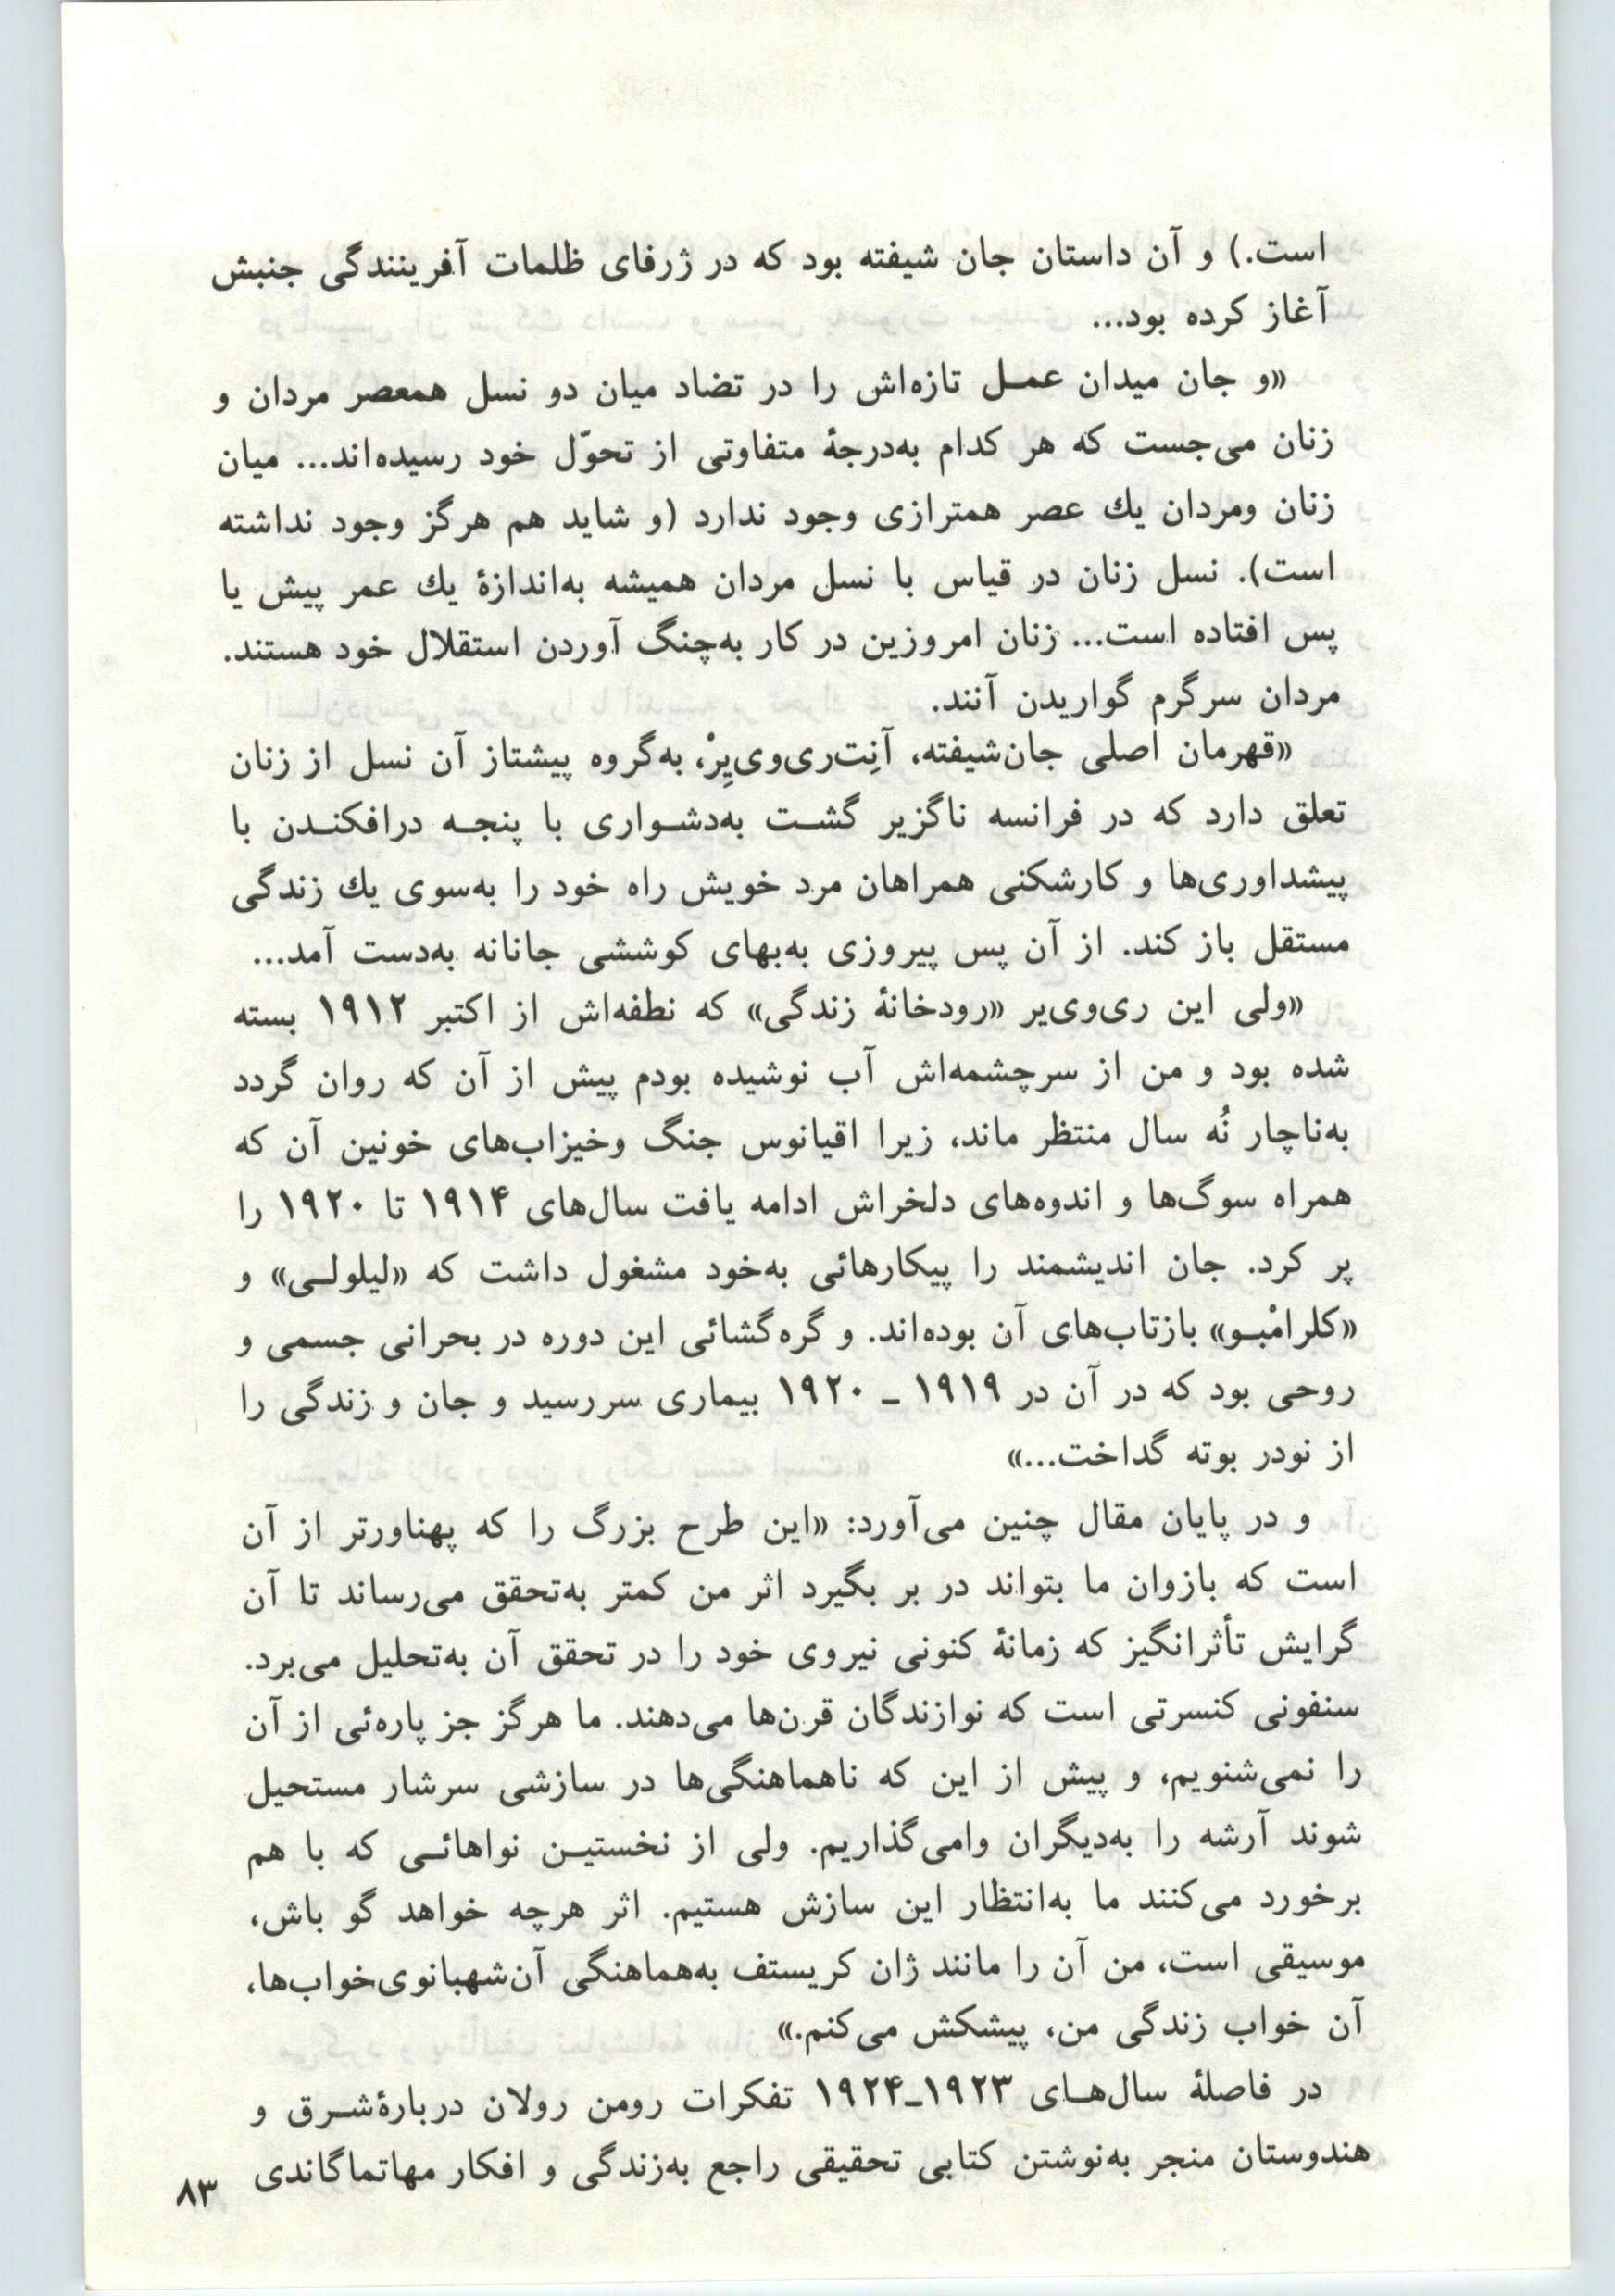 است.) و آن داستان جان شیفته بود که در ژرفای ظلمات آفرینندگی جنبش
آغاز کرده بود...
«و جان میدان عمـل تازه‌اش را در تضاد میان دو نسل همعصر مردان و
زنان می‌جست که هر کدام به‌درجهٔ متفاوتی از تحوّل خود رسیده‌اند... میان
زنان ومردان یك عصر همترازی وجود ندارد (و شاید هم هرگز وجود نداشته
است). نسل زنان در قیاس با نسل مردان همیشه به‌اندازهٔ یك عمر پیش یا
پس افتاده است... زنان امروزین در کار به‌چنگ آوردن استقلال خود هستند.
مردان سرگرم گواریدن آنند.
«قهرمان اصلی جان‌شیفته، آنِت‌ری‌وی‌یِرْ، به‌گروه پیشتاز آن نسل از زنان
تعلق دارد که در فرانسه ناگزیر گشـت به‌دشـواری با پنجـه درافکنـدن با
پیشداوری‌ها و کارشکنی همراهان مرد خویش راه خود را به‌سوی یك زندگی
مستقل باز کند. از آن پس پیروزی به‌بهای کوششی جانانه به‌دست آمد...
«ولی این ری‌وی‌یر «رودخانهٔ زندگی» که نطفه‌اش از اکتبر ۱۹۱۲ بسته
شده بود و من از سرچشمه‌اش آب نوشیده بودم پیش از آن که روان گردد
به‌ناچار نُه سال منتظر ماند، زیرا اقیانوس جنگ وخیزاب‌های خونین آن که
همراه سوگ‌ها و اندوه‌های دلخراش ادامه یافت سال‌های ۱۹۱۴ تا ۱۹۲۰ را
پر کرد. جان اندیشمند را پیکارهائی به‌خود مشغول داشت که «لیلولـی» و
«کلرامْبـو» بازتاب‌های آن بوده‌اند. و گره‌گشائی این دوره در بحرانی جسمی و
روحی بود که در آن در ۱۹۱۹ ـ ۱۹۲۰ بیماری سررسید و جان و زندگی را
از نودر بوته گداخت...»
و در پایان مقال چنین می‌آورد: «این طرح بزرگ را که پهناورتر از آن
است که بازوان ما بتواند در بر بگیرد اثر من کمتر به‌تحقق می‌رساند تا آن
گرایش تأثرانگیز که زمانهٔ کنونی نیروی خود را در تحقق آن به‌تحلیل می‌برد.
سنفونی کنسرتی است که نوازندگان قرن‌ها می‌دهند. ما هرگز جز پاره‌ئی از آن
را نمی‌شنویم، و پیش از این که ناهماهنگی‌ها در سازشی سرشار مستحیل
شوند آرشه را به‌دیگران وامی‌گذاریم. ولی از نخستیـن نواهائـی که با هم
برخورد می‌کنند ما به‌انتظار این سازش هستیم. اثر هرچه خواهد گو باش،
موسیقی است، من آن را مانند ژان کریستف به‌هماهنگی آن‌شهبانوی‌خواب‌ها،
آن خواب زندگی من، پیشکش می‌کنم.»
در فاصلهٔ سال‌هـای ۱۹۲۳ـ۱۹۲۴ تفکرات رومن رولان دربارهٔ‌شـرق و
هندوستان منجر به‌نوشتن کتابی تحقیقی راجع به‌زندگی و افکار مهاتماگاندی
۸۳